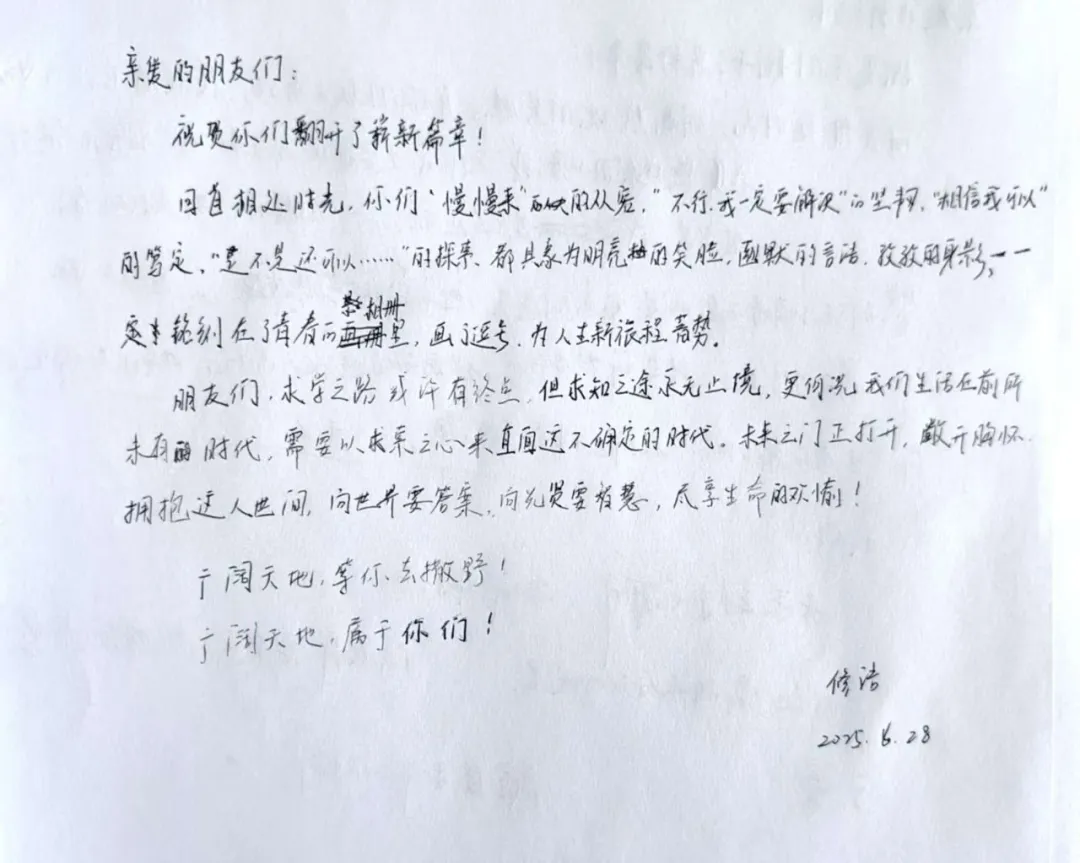 亲爱的朋友们：
祝贺你们翻开了崭新篇章！
回首相处时光，你们“慢慢来”的从容，“不行，我一定要解决”的坚韧，“相信我可以”
的笃定，“是不是还可以……”的探索，都具象为明亮的笑脸，幽默的言语，孜孜的身影，一一
镌刻在了青春的相册里，画逗号，为人生新旅程蓄势。
朋友们，求学之路或许有终点，但求知之途永无止境，更何况我们生活在前所
未有时代，需要以求索之心来直面这不确定的时代。未来之门正打开，敞开胸怀，
拥抱这人世间，向世界要答案，向先贤要智慧，尽享生命的欢愉！
广阔天地，等你去撒野！
广阔天地，属于你们！
修洁
2025.6.28